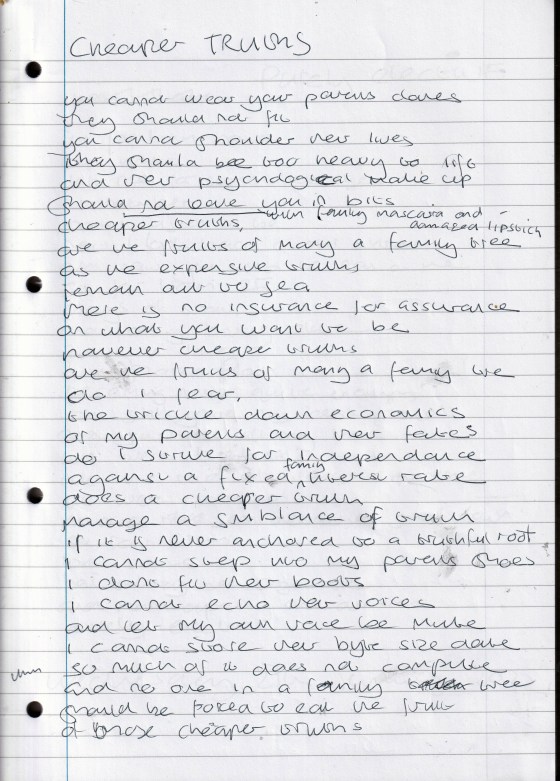 Cheaper Truths
you cannot wear your parents clothes
they should not fit
you cannot shoulder their lives
They should be too heavy to lift
and their psychological make up
should not leave you in bits
with family mascara and
damaged lipstick
cheaper truths,
are the fruits of many a family tree
as the expensive truths
remain out to sea
there is no insurance for assurance
on what you want to be
however cheaper truths
are the fruits of many a family tree
do I fear,
the trickle down economics
of my parents and their fates
do I strive for independance
against a fixed family interest rate
does a cheaper truth
manage a smblance of truth
if it is never anchored to a truthful root
I cannot step into my parents shoes
I dont fit their boots
I cannot echo their voices
and let my own voice be mute
I cannot store their byte size data
so much of it does not compute
and no one in a family tree
should be forced to eat the fruit
of those cheaper truths